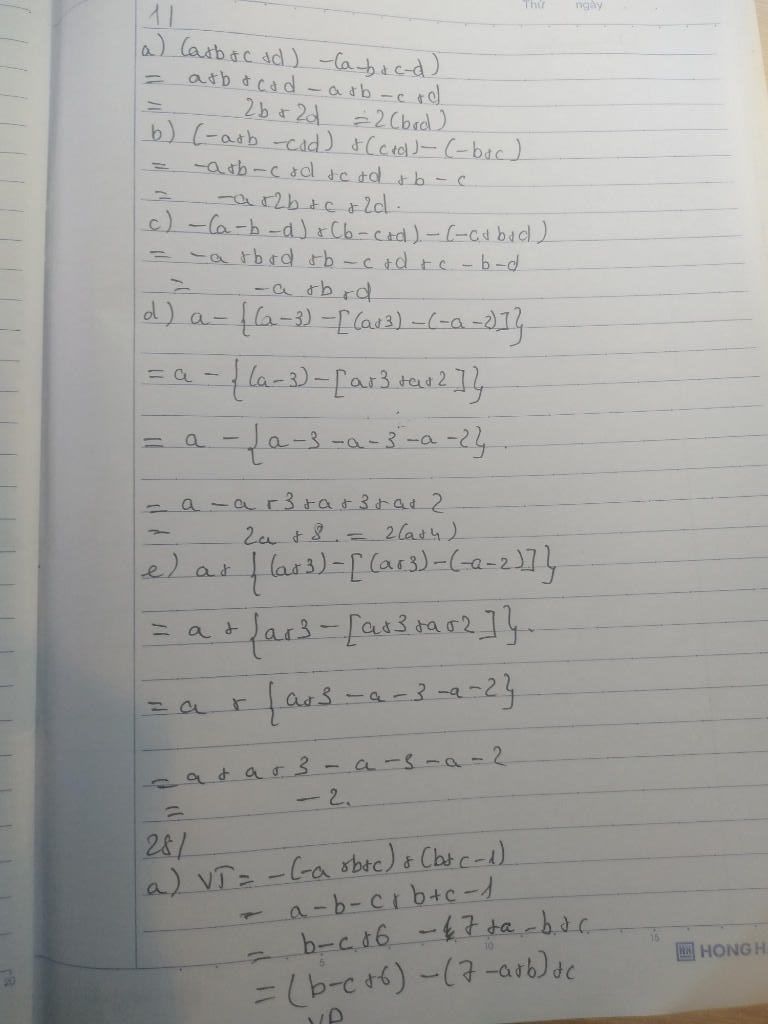 Thứ ngày
1/
a) (a+b+c+d) -(a-b+c-d)
= a+b+c+d-a+b-c+d
= 2b+2d = 2(b+d)
b) (-a+b-c+d)+(c+d)-(-b+c)
= -a+b-c+d+c+d+b-c
= -a+2b+c+2d.
c) -(a-b-d)+(b-c+d)-(-c+b+d)
= -a+b+d+b-c+d+c-b-d
= -a+b+d
d) a-{(a-3)-[(a+3)-(-a-2)]}
= a-{(a-3)-[a+3+a+2]}
= a-{a-3-a-3-a-2}.
= a-a+3+a+3+a+2
= 2a+8. = 2(a+4)
e) a+{(a+3)-[(a+3)-(-a-2)]}
= a+{a+3-[a+3+a+2]}.
= a+{a+3-a-3-a-2}
= a+a+3-a-3-a-2
= -2.
28/
a) VT = -(-a+b+c)+(b+c-1)
= a-b-c+b+c-1
= b-c+6-7+a-b+c
= (b-c+6)-(7-a+b)+c
VP
5 10 15
HONG H